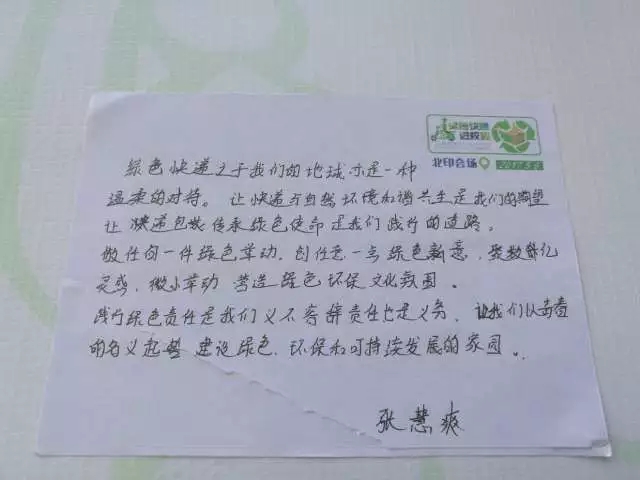 绿色快递
进校园
北印会场
2017.5.6
绿色快递之于我们的地球亦是一种
温柔的对待。让快递与自然环境和谐共生是我们的期望
让快递包装传承绿色使命是我们践行的道路。
做任何一件绿色举动,创任意一点绿色新意,聚数余亿
灵感,微小举动 营造绿色环保文化氛围。
践行绿色责任是我们义不容辞责任也是义务,让我们以青春
的名义起誓 建设绿色、环保和可持续发展的家园。
张慧爽